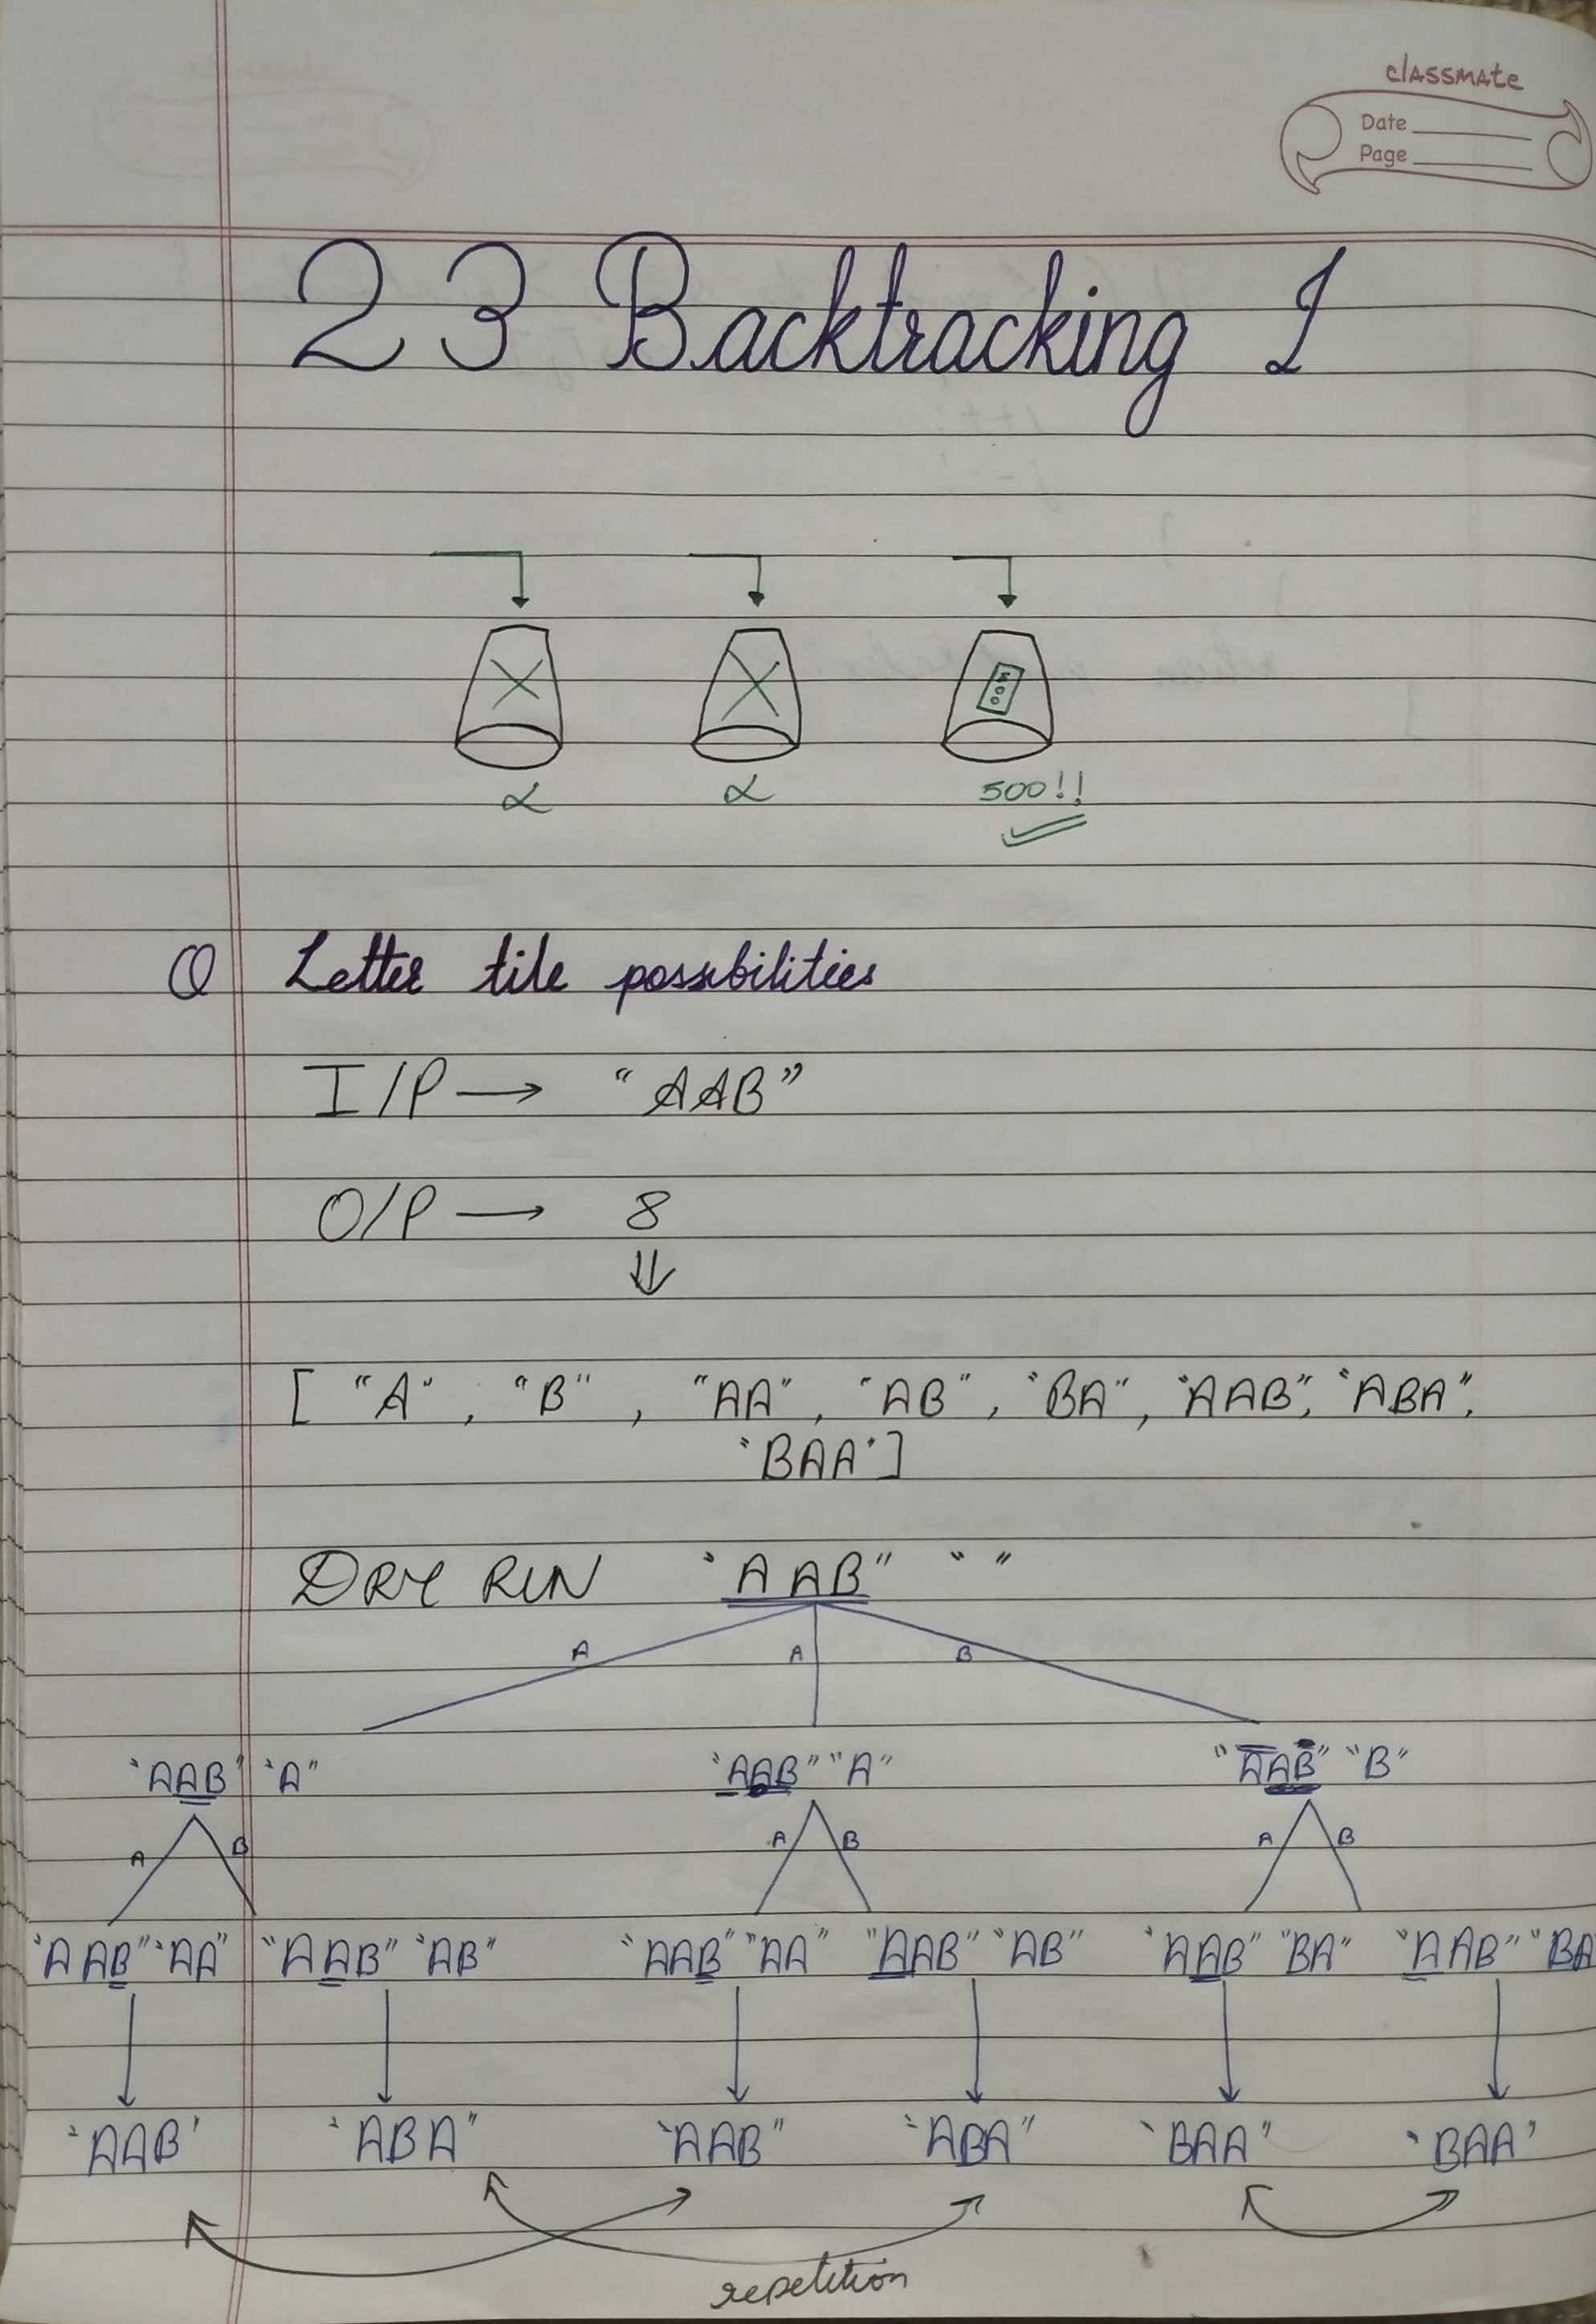 classmate
Date
Page
23 Backtracking I
500
α α 500!!
Q Letter tile possibilities
I/P → "AAB"
O/P → 8
⇓
[ "A", "B", "AA", "AB", "BA", "AAB", "ABA",
"BAA"]
DRY RUN "AAB" " "
A A B
"AAB" "A" "AAB" "A" "AAB" "B"
A B A B A B
"AAB" "AA" "AAB" "AB" "AAB" "AA" "AAB" "AB" "AAB" "BA" "AAB" "BA
"AAB" "ABA" "AAB" "ABA" "BAA" "BAA"
repetition